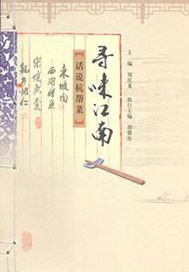 主 编 刘庆龙 执行主编
寻味江南
[话说杭帮菜]
东坡肉
西湖醋鱼
宋嫂鱼羹
龙井虾仁